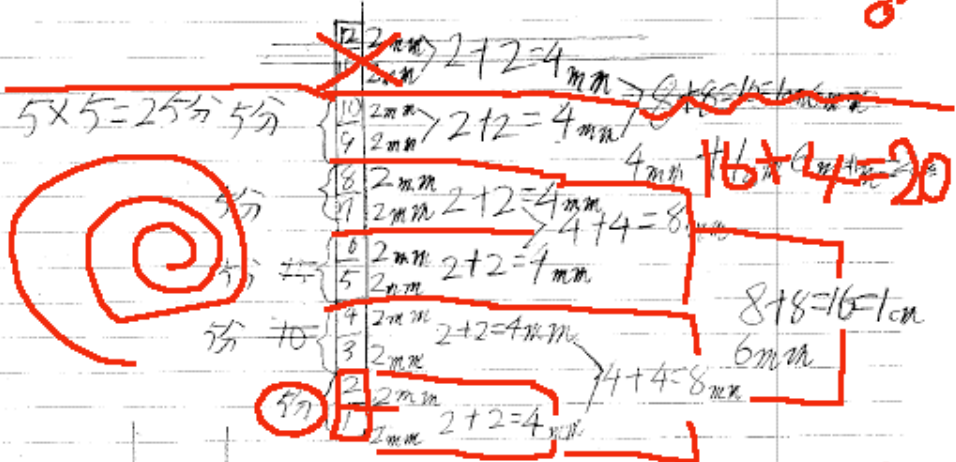 12 2mm
11 2mm 2+2=4mm
8+8=16=1cm6mm
5×5=25分 5分
10 2mm
9 2mm 2+2=4mm
4mm 16+4=20
5分 8 2mm
7 2mm 2+2=4mm
4+4=8mm
5分 6 2mm
5 2mm 2+2=4mm
8+8=16=1cm
6mm
5分 10= 4 2mm
3 2mm 2+2=4mm
4+4=8mm
5分 2 2mm
1 2mm 2+2=4mm